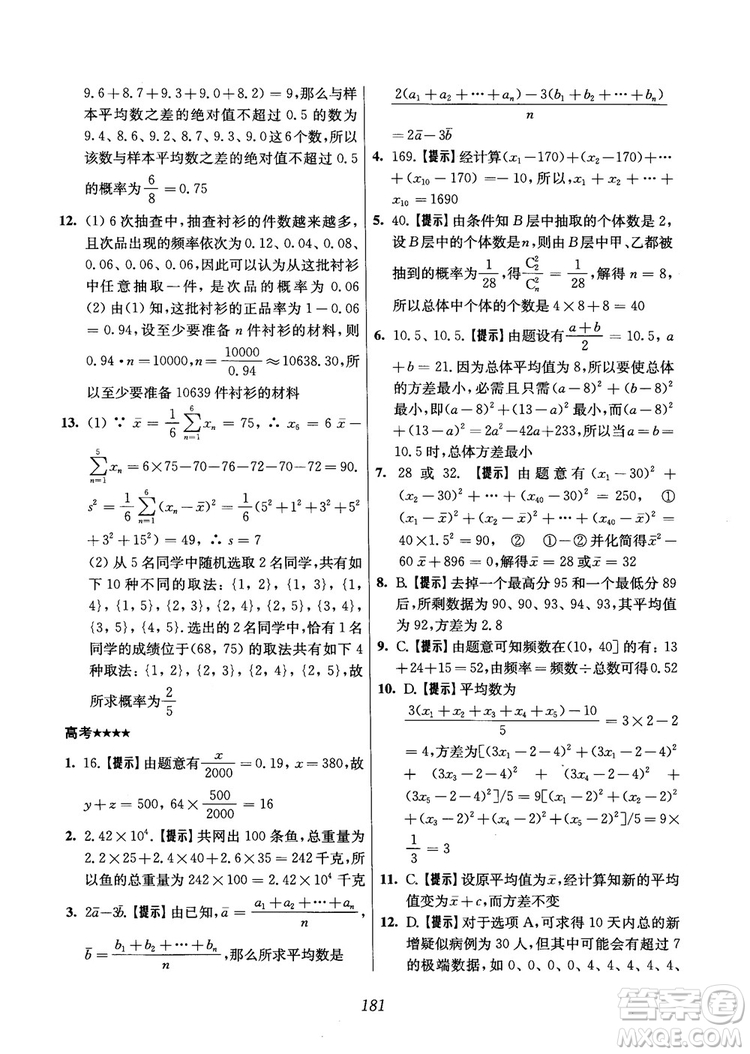 9.6+8.7+9.3+9.0+8.2)=9,那么与样
本平均数之差的绝对值不超过 0.5 的数为
9.4、8.6、9.2、8.7、9.3、9.0 这 6 个数,所以
该数与样本平均数之差的绝对值不超过 0.5
的概率为 6/8 = 0.75
12. (1) 6 次抽查中,抽查衬衫的件数越来越多,
且次品出现的频率依次为 0.12、0.04、0.08、
0.06、0.06、0.06,因此可以认为从这批衬衫
中任意抽取一件,是次品的概率为 0.06
(2) 由(1)知,这批衬衫的正品率为 1−0.06
=0.94,设至少要准备 n 件衬衫的材料,则
0.94·n=10000,n=10000/0.94≈10638.30,所
以至少要准备 10639 件衬衫的材料
13. (1) ∵ x̄ = 1/6 ∑_{n=1}^{6} xₙ = 75, ∴ x₆ = 6 x̄ −
∑_{n=1}^{5} xₙ = 6×75−70−76−72−70−72=90.
s² = 1/6 ∑_{n=1}^{6} (xₙ−x̄)² = 1/6 (5²+1²+3²+5²
+3²+15²)=49, ∴ s=7
(2) 从 5 名同学中随机选取 2 名同学,共有如
下 10 种不同的取法:{1, 2},{1, 3},{1,
4},{1, 5},{2, 3},{2, 4},{2, 5},{3, 4},
{3, 5},{4, 5}. 选出的 2 名同学中,恰有 1 名
同学的成绩位于(68, 75)的取法共有如下 4
种取法:{1, 2},{2, 3},{2, 4},{2, 5},故
所求概率为 2/5
高考★★★★
1. 16.【提示】由题意有 x/2000 = 0.19, x=380,故
y+z=500, 64× 500/2000 = 16
2. 2.42×10⁴.【提示】共网出 100 条鱼,总重量为
2.2×25+2.4×40+2.6×35=242 千克,所
以鱼的总重量为 242×10000/100=2.42×10⁴ 千克
3. 2ā−3b̄.【提示】由已知, ā = (a₁+a₂+⋯+aₙ)/n,
b̄ = (b₁+b₂+⋯+bₙ)/n,那么所求平均数是
(2(a₁+a₂+⋯+aₙ)−3(b₁+b₂+⋯+bₙ))/n
=2ā−3b̄
4. 169.【提示】经计算(x₁−170)+(x₂−170)+⋯
+(x₁₀−170)=−10,所以, x₁+x₂+⋯+
x₁₀=1690
5. 40.【提示】由条件知 B 层中抽取的个体数是 2,
设 B 层中的个体数是 n,则由 B 层中甲、乙都被
抽到的概率为 1/28,得 C₂²/Cₙ² = 1/28,解得 n=8,
所以总体中个体的个数是 4×8+8=40
6. 10.5、10.5.【提示】由题设有 (a+b)/2 = 10.5, a
+b=21. 因为总体平均值为 8,所以要使总体
的方差最小,必需且只需(a−8)²+(b−8)²
最小,即(a−8)²+(b−8)²=(a−8)²+(21
−a−8)²=(a−8)²+(13−a)²=a²−16a+
64+a²−26a+169=2a²−42a+233,所以当 a=b=
10.5 时,总体方差最小
7. 28 或 32.【提示】由题意有(x₁−30)²+
(x₂−30)²+⋯+(x₄₀−30)²=250, ①
(x₁−x̄)²+(x₂−x̄)²+⋯+(x₄₀−x̄)²=
40×1.5²=90, ②由①−②并化简得 x̄²−
60 x̄+896=0,解得 x̄=28 或 x̄=32
8. B.【提示】去掉一个最高分 95 和一个最低分 89
后,所剩数据为 90、90、93、94、93,其平均值
为 92,方差为 2.8
9. C.【提示】由题意可知频数在(10, 40]的有:13
+24+15=52,由频率=频数÷总数得 0.52
10. D.【提示】平均数为
(3(x₁+x₂+x₃+x₄+x₅)−10)/5 = 3×2−2
=4,方差为[(3x₁−2−4)²+(3x₂−2−4)²+
(3x₃−2−4)²+(3x₄−2−4)²+
(3x₅−2−4)²]/5=9[(x₁−2)²+(x₂−
2)²+(x₃−2)²+(x₄−2)²+(x₅−2)²]/5=9×
1/3 = 3
11. C.【提示】设原平均值为 x̄,经计算知新的平均
值变为 x̄+c,而方差不变
12. D.【提示】对于选项 A,可求得 10 天内总的
新增疑似病例为 30 人,但其中可能有超过 7
的极端数据,如 0、0、0、0、4、4、4、4、4、
181
答案圈